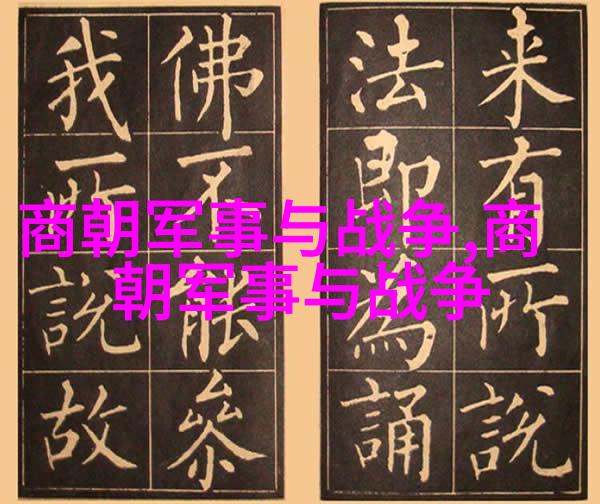 商朝军事与战争,商
朝军事与战争
来有所說
法即為誦
佛不能參
我所說故